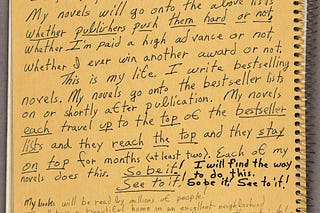 My novels will go onto the above lists
whether publishers push them hard or not,
whether I'm paid a high advance or not,
whether I ever win another award or not.
This is my life. I write bestselling
novels. My novels go onto the bestseller lists
on or shortly after publication. My novels
each travel up to the top of the bestseller
lists and they reach the top and they stay
on top for months (at least two). Each of my
novels does this. So be it! I will find the way
See to it! to do this.
So be it! See to it!
My books will be read by millions of people!
beautiful home in an excellent neighborhood